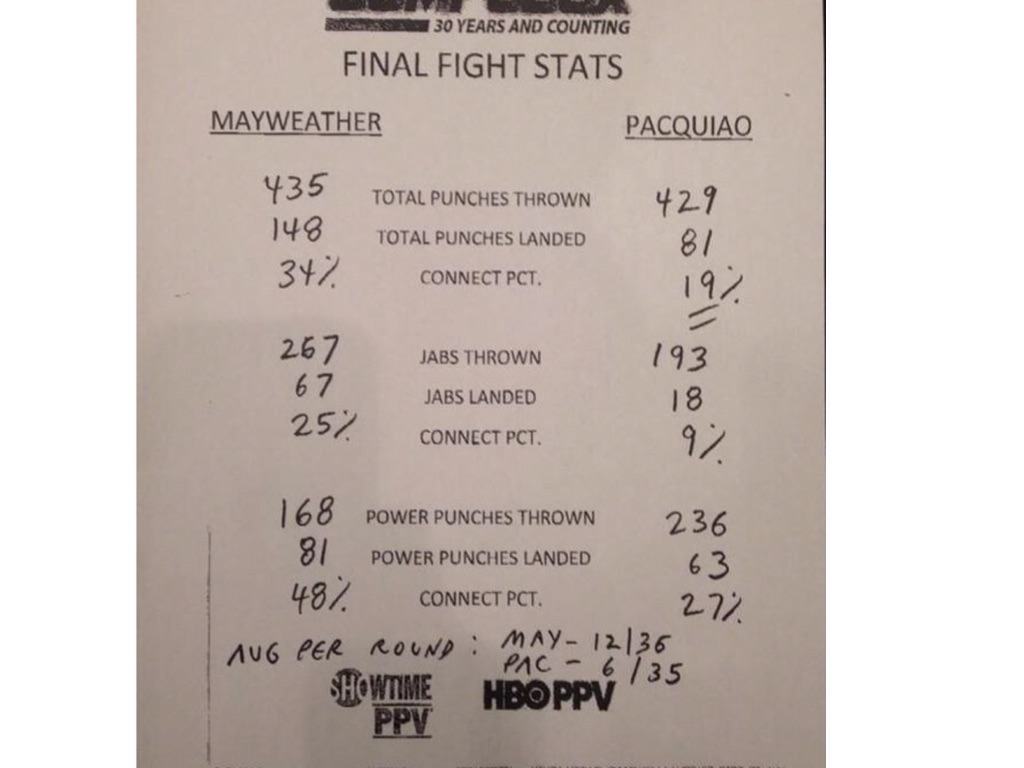 30 YEARS AND COUNTING
FINAL FIGHT STATS
MAYWEATHER PACQUIAO
435 TOTAL PUNCHES THROWN 429
148 TOTAL PUNCHES LANDED 81
34% CONNECT PCT. 19%
267 JABS THROWN 193
67 JABS LANDED 18
25% CONNECT PCT. 9%
168 POWER PUNCHES THROWN 236
81 POWER PUNCHES LANDED 63
48% CONNECT PCT. 27%
AVG PER ROUND: MAY - 12/36
PAC - 6/35
SHOWTIME HBO PPV
PPV